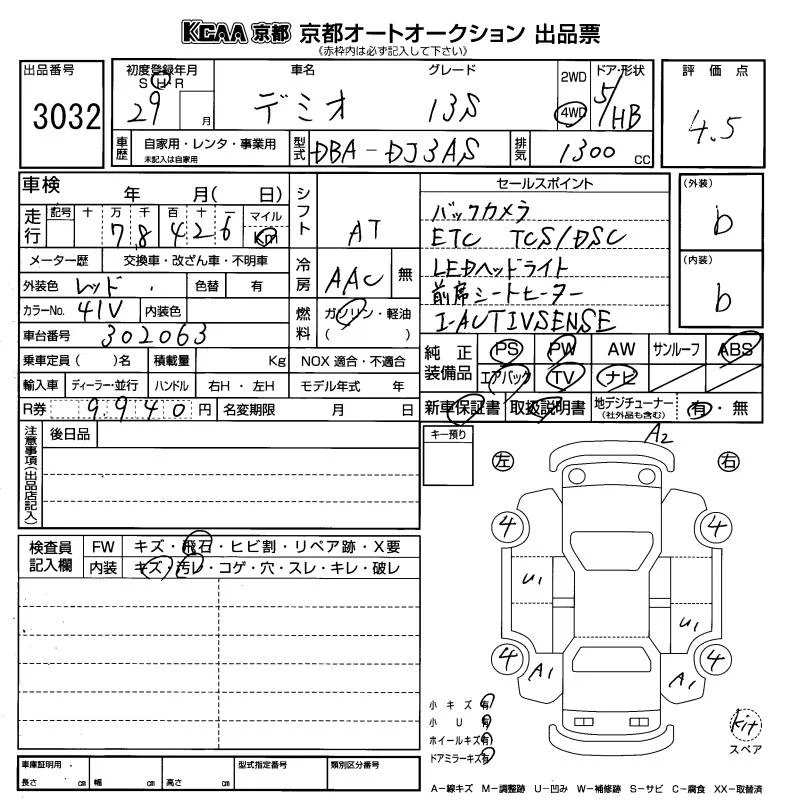 KCAA 京都 京都オートオークション 出品票
《赤枠内は必ず記入して下さい》
出品番号 3032
初度登録年月 S H R 29 月
車名 デミオ
グレード 13S
2WD 4WD
ドア・形状 5/HB
評価点 4.5
車歴 自家用・レンタ・事業用 未記入は自家用
型式 DBA-DJ3AS
排気 1300 CC
車検 年 月( 日)
シフト AT
セールスポイント
バックカメラ
ETC TCS/DSC
LEDヘッドライト
前席シートヒーター
I-ACTIVSENSE
(外装) b
(内装) b
走行 記号 十 万 千 百 十 一 マイル Km
78426
メーター歴 交換車・改ざん車・不明車
冷房 AAC 無
外装色 レッド 色替 有
カラーNo. 41V 内装色
燃料 ガソリン・軽油 ( )
車台番号 302063
純正装備品 PS PW AW サンルーフ ABS
エアバック TV ナビ
乗車定員 ( )名 積載量 Kg NOX 適合・不適合
輸入車 ディーラー・並行 ハンドル 右H・左H モデル年式 年
R券 9,940 円 名変期限 月 日
新車保証書 取扱説明書 地デジチューナー (社外品も含む) 有・無
注意事項(出品店記入) 後日品
キー預り
A2
左 右
4 4
U1
U1
4 4
A1 A1
検査員記入欄 FW キズ・飛石・ヒビ割・リペア跡・X要
内装 キズ・汚レ・コゲ・穴・スレ・キレ・破レ
小キズ 有
小U 有
ホイールキズ 有
ドアミラーキズ 有
kit
スペア
車庫証明用 長さ cm 幅 cm 高さ cm
型式指定番号 類別区分番号
A−線キズ M−調整跡 U−凹み W−補修跡 S−サビ C−腐食 XX−取替済